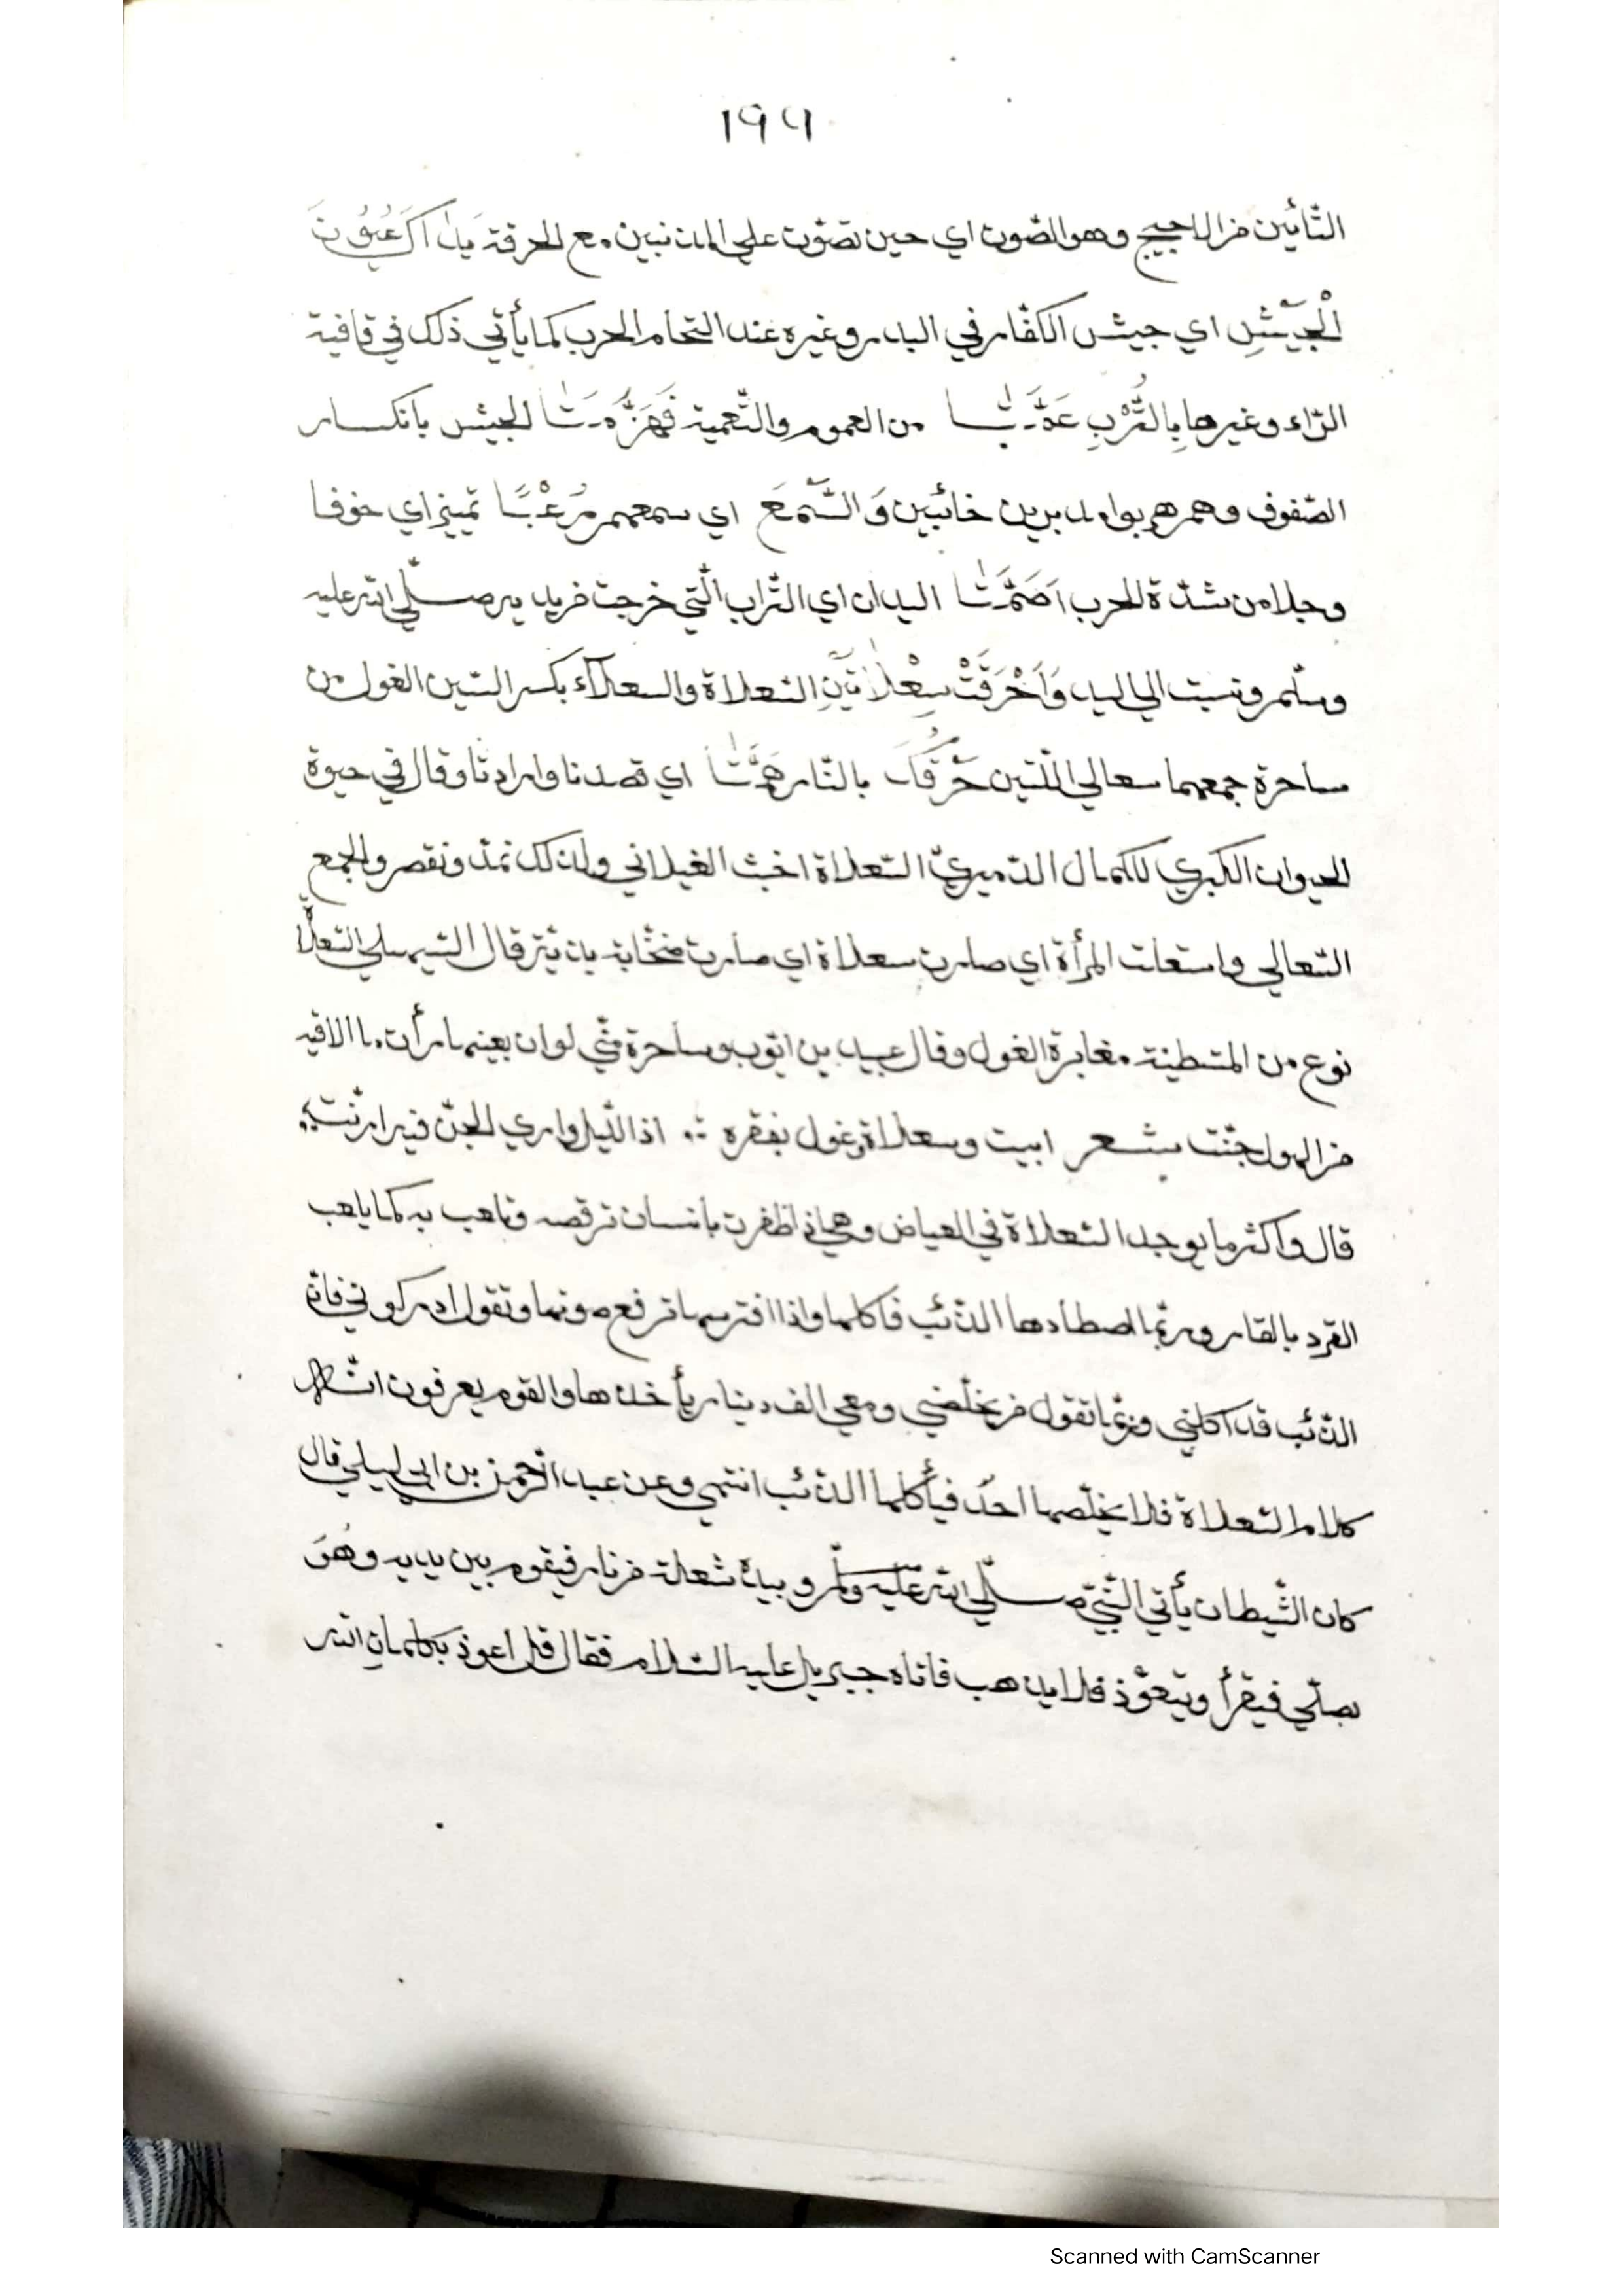 ١٩٦
التّائين من الاجيج وهو الصّوت اي حين تصوّت علي المذنبين مع الحرقة يدا اكَ عُيُوْنَ
الْجَيْشِ اي جيش الكفّار في البدر وغيره عند التحام الحرب كما يأتي ذلك في قافية
الرّاء وغيرها بِالتُّرْبِ عَمَّتَا من العموم والتّعمية فَهَزَّمَتَا الجيش بانكسار
الصّفوف وهم هربوا مدبرين خائبين وَالسَّمْعَ اي سمعهم رُعْبًا تمييز اي خوفا
وجلا من شدّة الحرب اَصَمَّتَا اليدان اي التّراب الّتي خرجت من يديه صلّي الله عليه
وسلّم ونسبت الي اليد وَاَحْرَقَتْ سِعْلَاتَيْنِ السّعلاة والسعلاء بكسر السّين الغول من
ساحرة جمعهما سعالي اللّتين حَرْقَكَ بالنّار هَمَّتَا اي قصدتا وارادتا وقال في حيوة
الحيوان الكبري للكمال الدّميريّ السّعلاة اخبث الغيلاني ولذلك تمدّ وتقصر والجمع
السّعالي واستعلت المرأة اي صارت سعلاة اي صارت صخّابة بذيّة قال السّهيلي السّعلاة
نوع من المتشطينة مغايرة الغول وقال عبيد بن ايّوب وساحرة منّي لو ان بعينها رأت ما الاقيه
من الهول جنّت بشعر ابيت وسعلاة وغول بقفرة ∴ اذا اللّيل واري الجنّ فيه ارنّت ∴
قال واكثر ما يوجد السّعلاة في الغياض وهي اذا ظفرت بانسان ترقصه وتلعب به كما يلعب
القرد بالفار وربّما اصطادها الذّئب فاكلها واذا افترسها ترفع صوتها وتقول ادركوني فانّ
الذّئب قد اكلني وربّما تقول من يخلّصني ومعي الف دينار يأخذها والقوم يعرفون انّه
كلام السّعلاة فلا يخلّصها احدٌ فيأكلها الذّئب انتهي وعن عبد الرّحمن بن ابي ليلي قال
كان الشّيطان يأتي النّبيّ صلّي الله عليه وسلّم وبيده شعلة من نار فيقوم بين يديه وهُوَ
يصلّي فيقرأ ويتعوّذ فلا يذهب فاتاه جبريل عليه السّلام فقال قل اعوذ بكلمات الله
Scanned with CamScanner